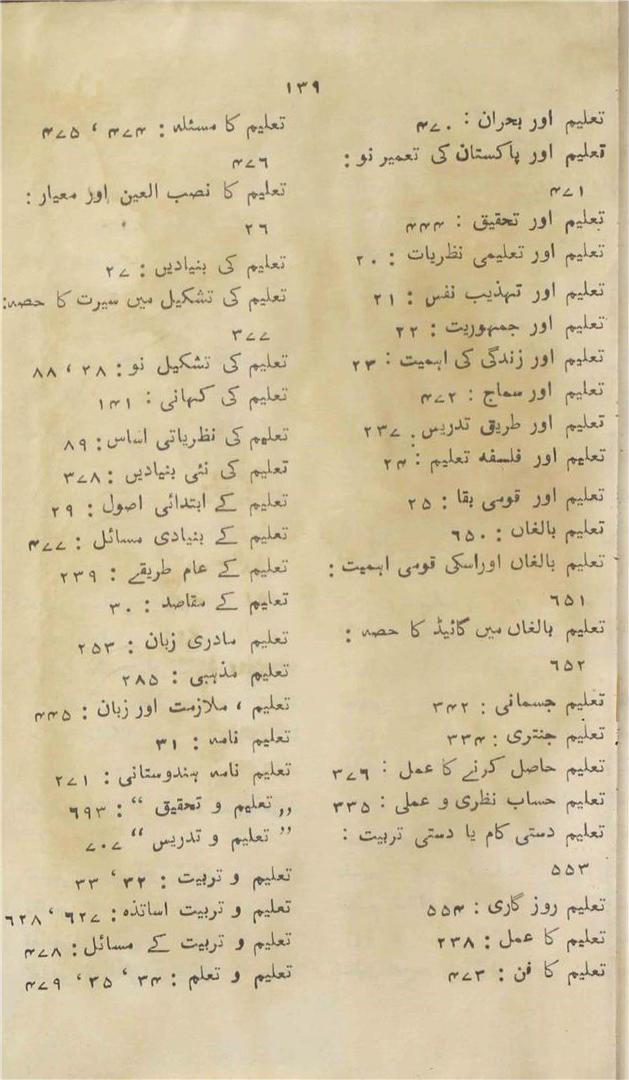 ۱۳۹
تعلیم اور بحران : ۴۷۰
تعلیم اور پاکستان کی تعمیر نو :
۴۷۱
تعلیم اور تحقیق : ۴۴۴
تعلیم اور تعلیمی نظریات : ۲۰
تعلیم اور تہذیب نفس : ۲۱
تعلیم اور جمہوریت : ۲۲
تعلیم اور زندگی کی اہمیت : ۲۳
تعلیم اور سماج : ۴۷۲
تعلیم اور طریق تدریس : ۲۳۷
تعلیم اور فلسفہ تعلیم : ۲۴
تعلیم اور قومی بقا : ۲۵
تعلیم بالغاں : ۶۵۰
تعلیم بالغاں اوراسکی قومی اہمیت :
۶۵۱
تعلیم بالغاں میں گائیڈ کا حصہ :
۶۵۲
تعلیم جسمانی : ۳۴۲
تعلیم جنتری : ۳۳۴
تعلیم حاصل کرنے کا عمل : ۳۷۶
تعلیم حساب نظری و عملی : ۳۳۵
تعلیم دستی کام یا دستی تربیت :
۵۵۳
تعلیم روز گاری : ۵۵۴
تعلیم کا عمل : ۲۳۸
تعلیم کا فن : ۴۷۳
تعلیم کا مسئلہ : ۴۷۴ ‘ ۴۷۵
۴۷۶
تعلیم کا نصب العین اور معیار :
۲۶
تعلیم کی بنیادیں : ۲۷
تعلیم کی تشکیل میں سیرت کا حصہ:
۳۷۷
تعلیم کی تشکیل نو : ۲۸ ‘ ۸۸
تعلیم کی کہانی : ۱۴۱
تعلیم کی نظریاتی اساس : ۸۹
تعلیم کی نئی بنیادیں : ۳۷۸
تعلیم کے ابتدائی اصول : ۲۹
تعلیم کے بنیادی مسائل : ۴۷۷
تعلیم کے عام طریقے : ۲۳۹
تعلیم کے مقاصد : ۳۰
تعلیم مادری زبان : ۲۵۳
تعلیم مذہبی : ۲۸۵
تعلیم ، ملازمت اور زبان : ۴۴۵
تعلیم نامہ : ۳۱
تعلیم نامہ ہندوستانی : ۲۷۱
,, تعلیم و تحقیق “ : ۶۹۳
” تعلیم و تدریس “ ۷۰۷
تعلیم و تربیت : ۳۲ ‘ ۳۳
تعلیم و تربیت اساتذہ : ۶۲۷ ‘ ۶۲۸
تعلیم و تربیت کے مسائل : ۴۷۸
تعلیم و تعلم : ۳۴ ‘ ۳۵ ‘ ۴۷۹